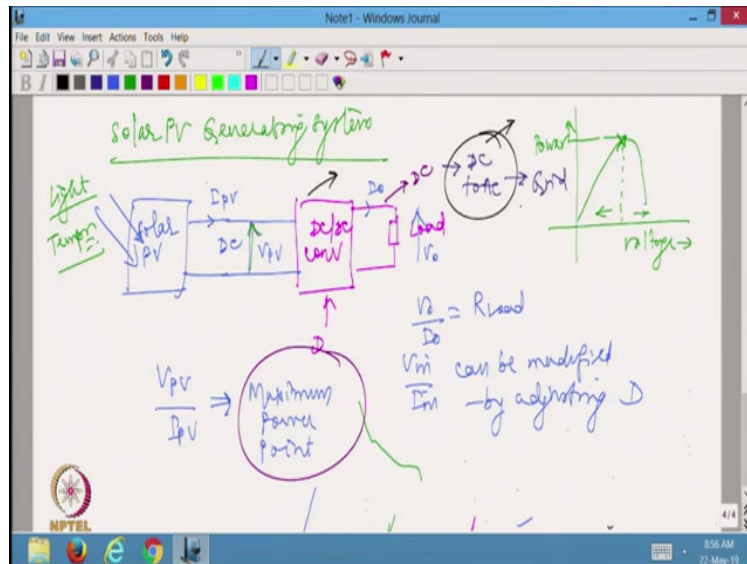 Note1 - Windows Journal
File Edit View Insert Actions Tools Help
B I
Solar PV Generating System
Light
Tempr
Solar PV
Ipv
DC
Vpv
DC/DC Conv
D
Io
DC
Load
Vo
DC to AC
Grid
Power
Voltage →
Vo/Io = RLoad
Vin/Iin can be modified
- by adjusting D
Vpv/Ipv ⇒ Maximum Power Point
NPTEL
4/4
8:56 AM
22-May-19